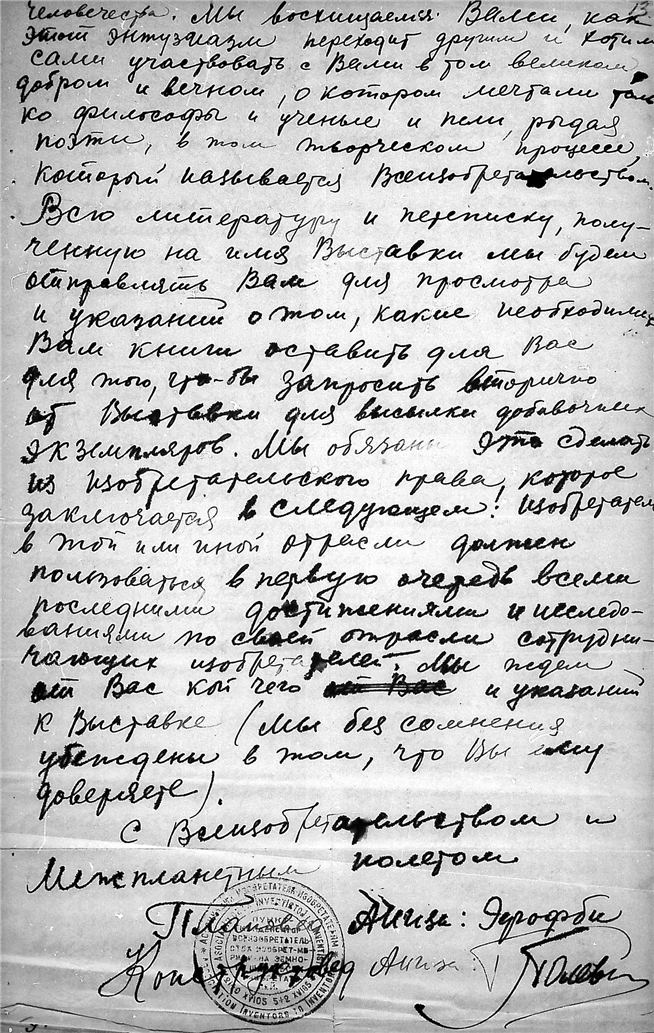 13
человечества. Мы восхищаемся Вами, как
этот энтузиазм переходит другим и хотим
сами участвовать с Вами в том великом,
добром и вечном, о котором мечтали толь
ко философы и ученые и пели, рыдая
поэты, в том творческом процессе,
который называется Всеизобретательством.
Всю литературу и переписку, полу-
ченную на имя Выставки мы будем
отправлять Вам для просмотра
и указаний о том, какие необходимых
Вам книги оставить для Вас
для того, что-бы запросить вторично
от Выставки для высылки добавочных
экземпляров. Мы обязаны это сделать
из изобретательского права, которое
заключается в следующем: изобретатель
в той или иной отрасли должен
пользоваться в первую очередь всеми
последними достижениями и исследо-
ваниями по своей отрасли сотрудни-
чающих изобретателей. Мы ждем
от Вас кой чего от Вас и указаний
к Выставке (мы без сомнения
убеждены в том, что Вы ему
доверяете).
С Всеизобретательством и
Межпланетным полетом
Аииза: Эрофби
Аииза: